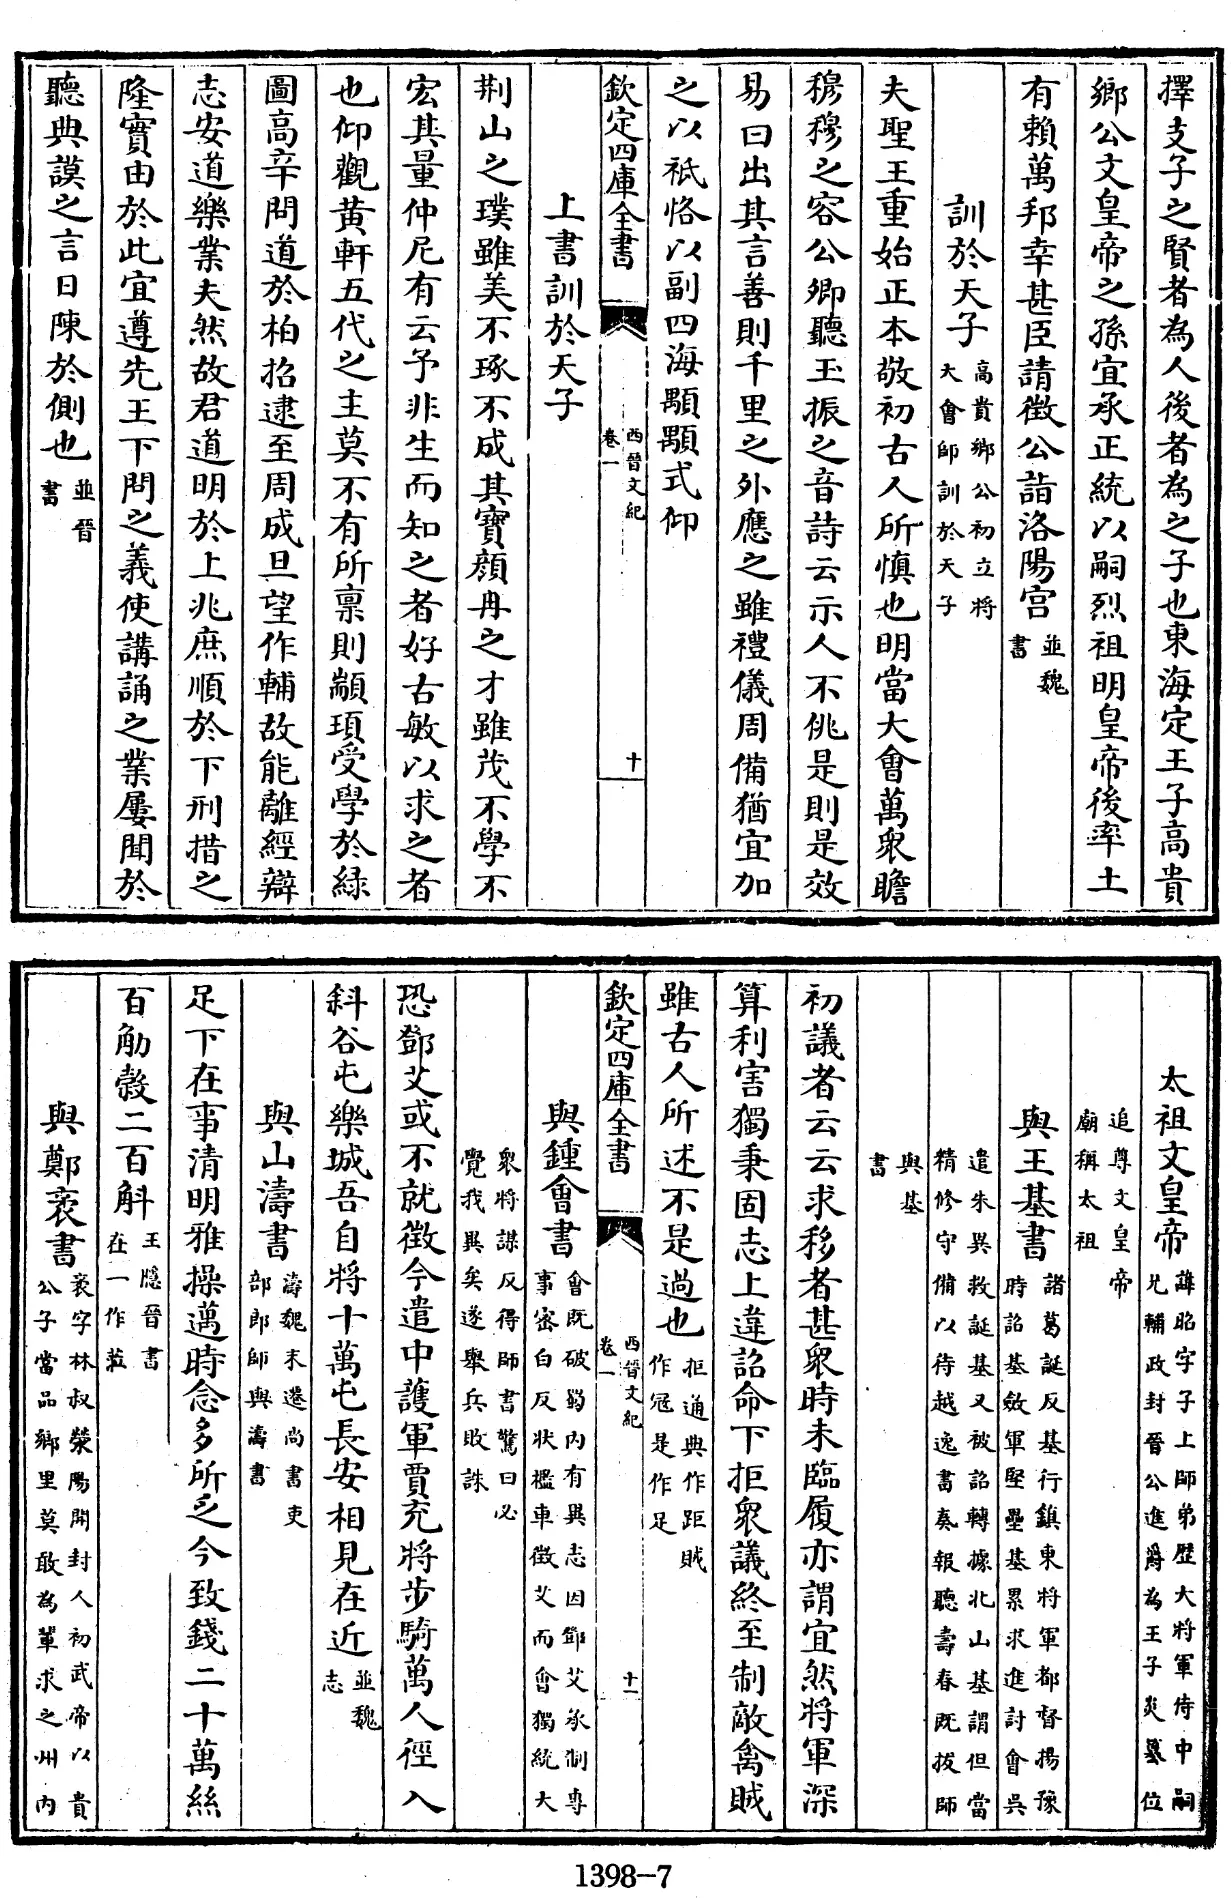 擇支子之賢者為人後者為之子也東海定王子高貴
鄉公文皇帝之孫宜承正統以嗣烈祖明皇帝後率土
有賴萬邦幸甚臣請徵公詣洛陽宫並魏書
訓於天子高貴鄉公初立將大會師訓於天子
夫聖王重始正本敬初古人所慎也明當大會萬衆瞻
穆穆之容公卿聽玉振之音詩云示人不佻是則是效
易曰出其言善則千里之外應之雖禮儀周備猶宜加
之以祇恪以副四海顒顒式仰
欽定四庫全書 西晉文紀 卷一 十
上書訓於天子
荆山之璞雖美不琢不成其寶顔冉之才雖茂不學不
宏其量仲尼有云予非生而知之者好古敏以求之者
也仰觀黄軒五代之主莫不有所禀則顓頊受學於緑
圖高辛問道於柏招逮至周成旦望作輔故能離經辯
志安道樂業夫然故君道明於上兆庶順於下刑措之
隆實由於此宜遵先王下問之義使講誦之業屢聞於
聽典謨之言日陳於側也並晉書
太祖文皇帝諱昭字子上師弟歴大將軍侍中嗣兄輔政封晉公進爵為王子炎篡位
追尊文皇帝廟稱太祖
與王基書諸葛誕反基行鎮東將軍都督揚豫時詔基斂軍堅壘基累求進討會吳
遣朱異救誕基又被詔轉據北山基謂但當精修守備以待越逸書奏報聽壽春既拔師
與基書
初議者云云求移者甚衆時未臨履亦謂宜然將軍深
算利害獨秉固志上違詔命下拒衆議終至制敵禽賊
雖古人所述不是過也拒通典作距賊作冦是作足
欽定四庫全書 西晉文紀 卷一 十一
與鍾會書會既破蜀内有異志因鄧艾承制專事密白反狀檻車徵艾而會獨統大
衆將謀反得師書驚曰必覺我異矣遂舉兵敗誅
恐鄧艾或不就徵今遣中護軍賈充將步騎萬人徑入
斜谷屯樂城吾自將十萬屯長安相見在近並魏志
與山濤書濤魏末遷尚書吏部郎師與濤書
足下在事清明雅操邁時念多所乏今致錢二十萬絲
百觔穀二百斛王隱晉書在一作蒞
與鄭袤書袤字林叔滎陽開封人初武帝以貴公子當品鄉里莫敢為輩求之州内
1398-7